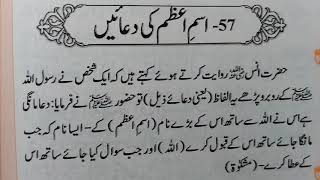 57- اسمِ اعظم کی دعائیں
حضرت انس رضی اللہ عنہ روایت کرتے ہوئے کہتے ہیں کہ ایک شخص نے رسول اللہ
ﷺ کے روبرو پڑھے یہ الفاظ (یعنی دعائے ذیل) تو حضور ﷺ نے فرمایا: دعا مانگی
ہے اس نے اللہ سے ساتھ اس کے بڑے نام (اسمِ اعظم) کے- ایسا نام کہ جب
مانگا جائے ساتھ اس کے قبول کرے (اللہ) اور جب سوال کیا جائے ساتھ اس
کے عطا کرے- (مشکوٰۃ)